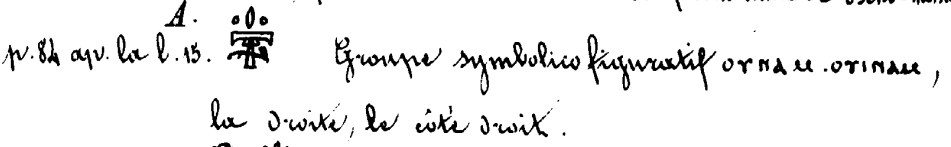 A.
p. 84 ap. la l. 15. Groupe symbolico figuratif ⲟⲩⲛⲁⲙ. ⲟⲩⲓⲛⲁⲙ,
la droite, le côté droit.